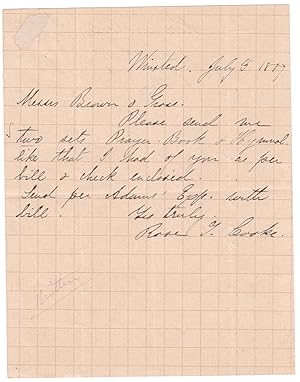 Winsted. July 5 1887
Messrs Brown & Gross.
Please send me
two sets Prayer-Book & Hymnal
like that I had of you as per
bill & check enclosed.
Send per Adams' Exp. with
bill.
Yrs truly.
Rose T. Cooke.
Written